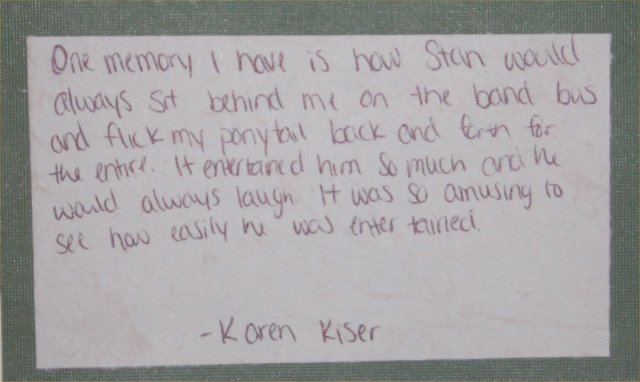 One memory I have is how Stan would
always sit behind me on the band bus
and flick my ponytail back and forth for
the entire. It entertained him so much and he
would always laugh. It was so amusing to
see how easily he was entertained.
-Karen Kiser